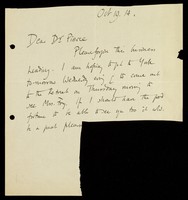 Oct 19. 14.
Dear Dr Pierce
Please forgive this business
heading. I am hoping to get to Yale
to-morrow Wednesday and to come out
to the Retreat on Thursday morning to
see Mrs. Foy. If I should have the good
fortune to be able to see you too it wld.
be a great pleasure